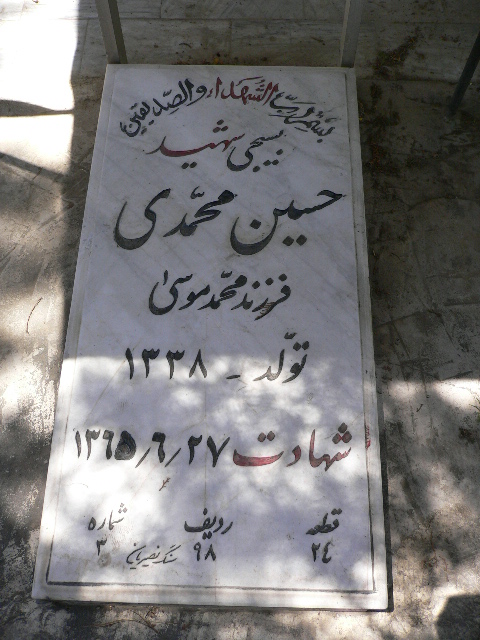 بسم رب الشهداء و الصدیقین
بسیجی شهید
حسین محمّدی
فرزند محمّد موسیٰ
تولّد - ۱۳۳۸
شهادت ۱۳۶۵/۶/۲۷
قطعه ردیف شماره
۲۴ ۹۸ ۳
سنگ نصیریانی